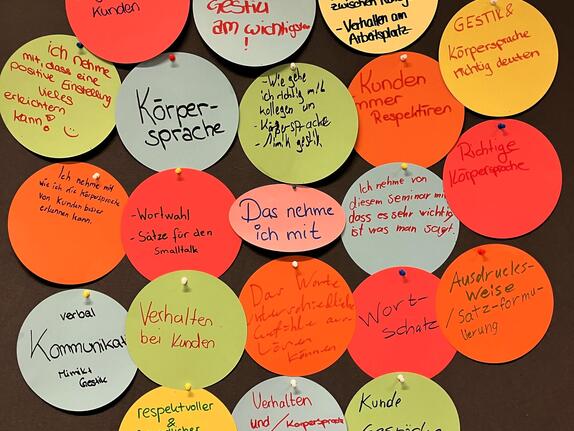 Kunden
Gestik
am wichtigsten
!
zwischen
- Verhalten am
Arbeitsplatz
GESTIK &
Körpersprache
richtig deuten
ich nehme
mit, dass eine
positive Einstellung
vieles
erleichtern
kann!
Körper-
sprache
- Wie gehe
ich richtig mit
kollegen um
- Körpersprache
- Mimik gestik
Kunden
immer
Respektieren
Richtige
Körpersprache
Ich nehme mit
wie ich die Körpersprache
von Kunden besser
erkennen kann.
- Wortwahl
- Sätze für den
Smalltalk
Das nehme
ich mit
Ich nehme von
diesem Seminar mit
dass es sehr wichtig
ist was man sagt.
verbal
Kommunikat
Mimik +
Gestik
Verhalten
bei Kunden
Das Worte
unterschiedliche
Gefühle aus-
lösen
können
Wort-
schatz
Ausdrucks-
weise
/ Satz-formu-
lierung
respektvoller
&
Verhalten
und / Körpersprache
Kunde